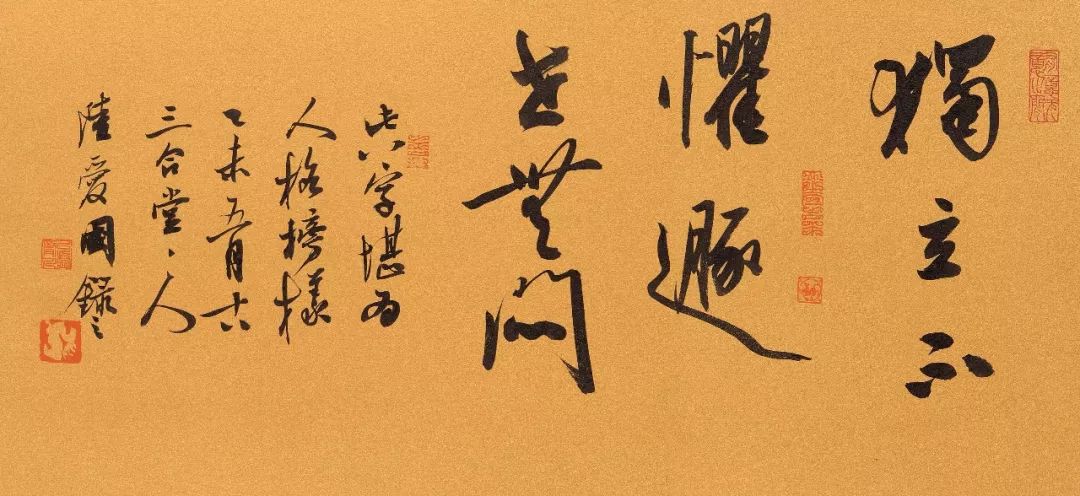 獨立不
懼遯
世無悶
此八字堪為
人格榜樣
乙未五月十六
三合堂丶人
陸愛國錄之